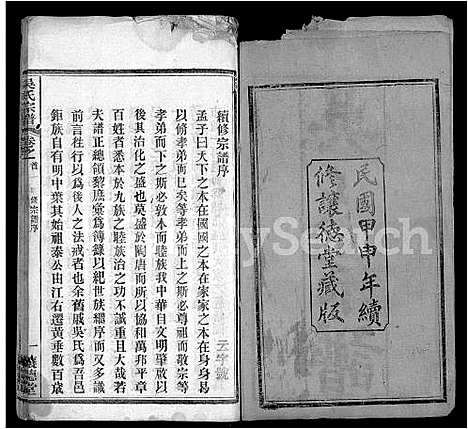 民國甲申年續
修讓德堂藏版
續修宗譜序
孟子曰天下之本在國國之本在家家之本在身身曷
以修孝弟而已矣等孝弟而上之斯必尊祖而敬宗等
孝弟而下之斯必親本而睦族我中華目文明肇啟以
其治化之盛也莫盛於陶唐而所以協和萬邦平章
百姓者悉本於九族之睦族治之功不誠重且大哉若
夫譜正總領黎庶彙為簿錄以紀世族繼序而言之
前言往行以為後人之法戒者也余舊戚吳氏為吾邑
鉅族自有明中葉其始祖泰公由江右遷黃垂數百歲
吳氏宗譜
卷之一
首
修宗譜序
一
讓德堂